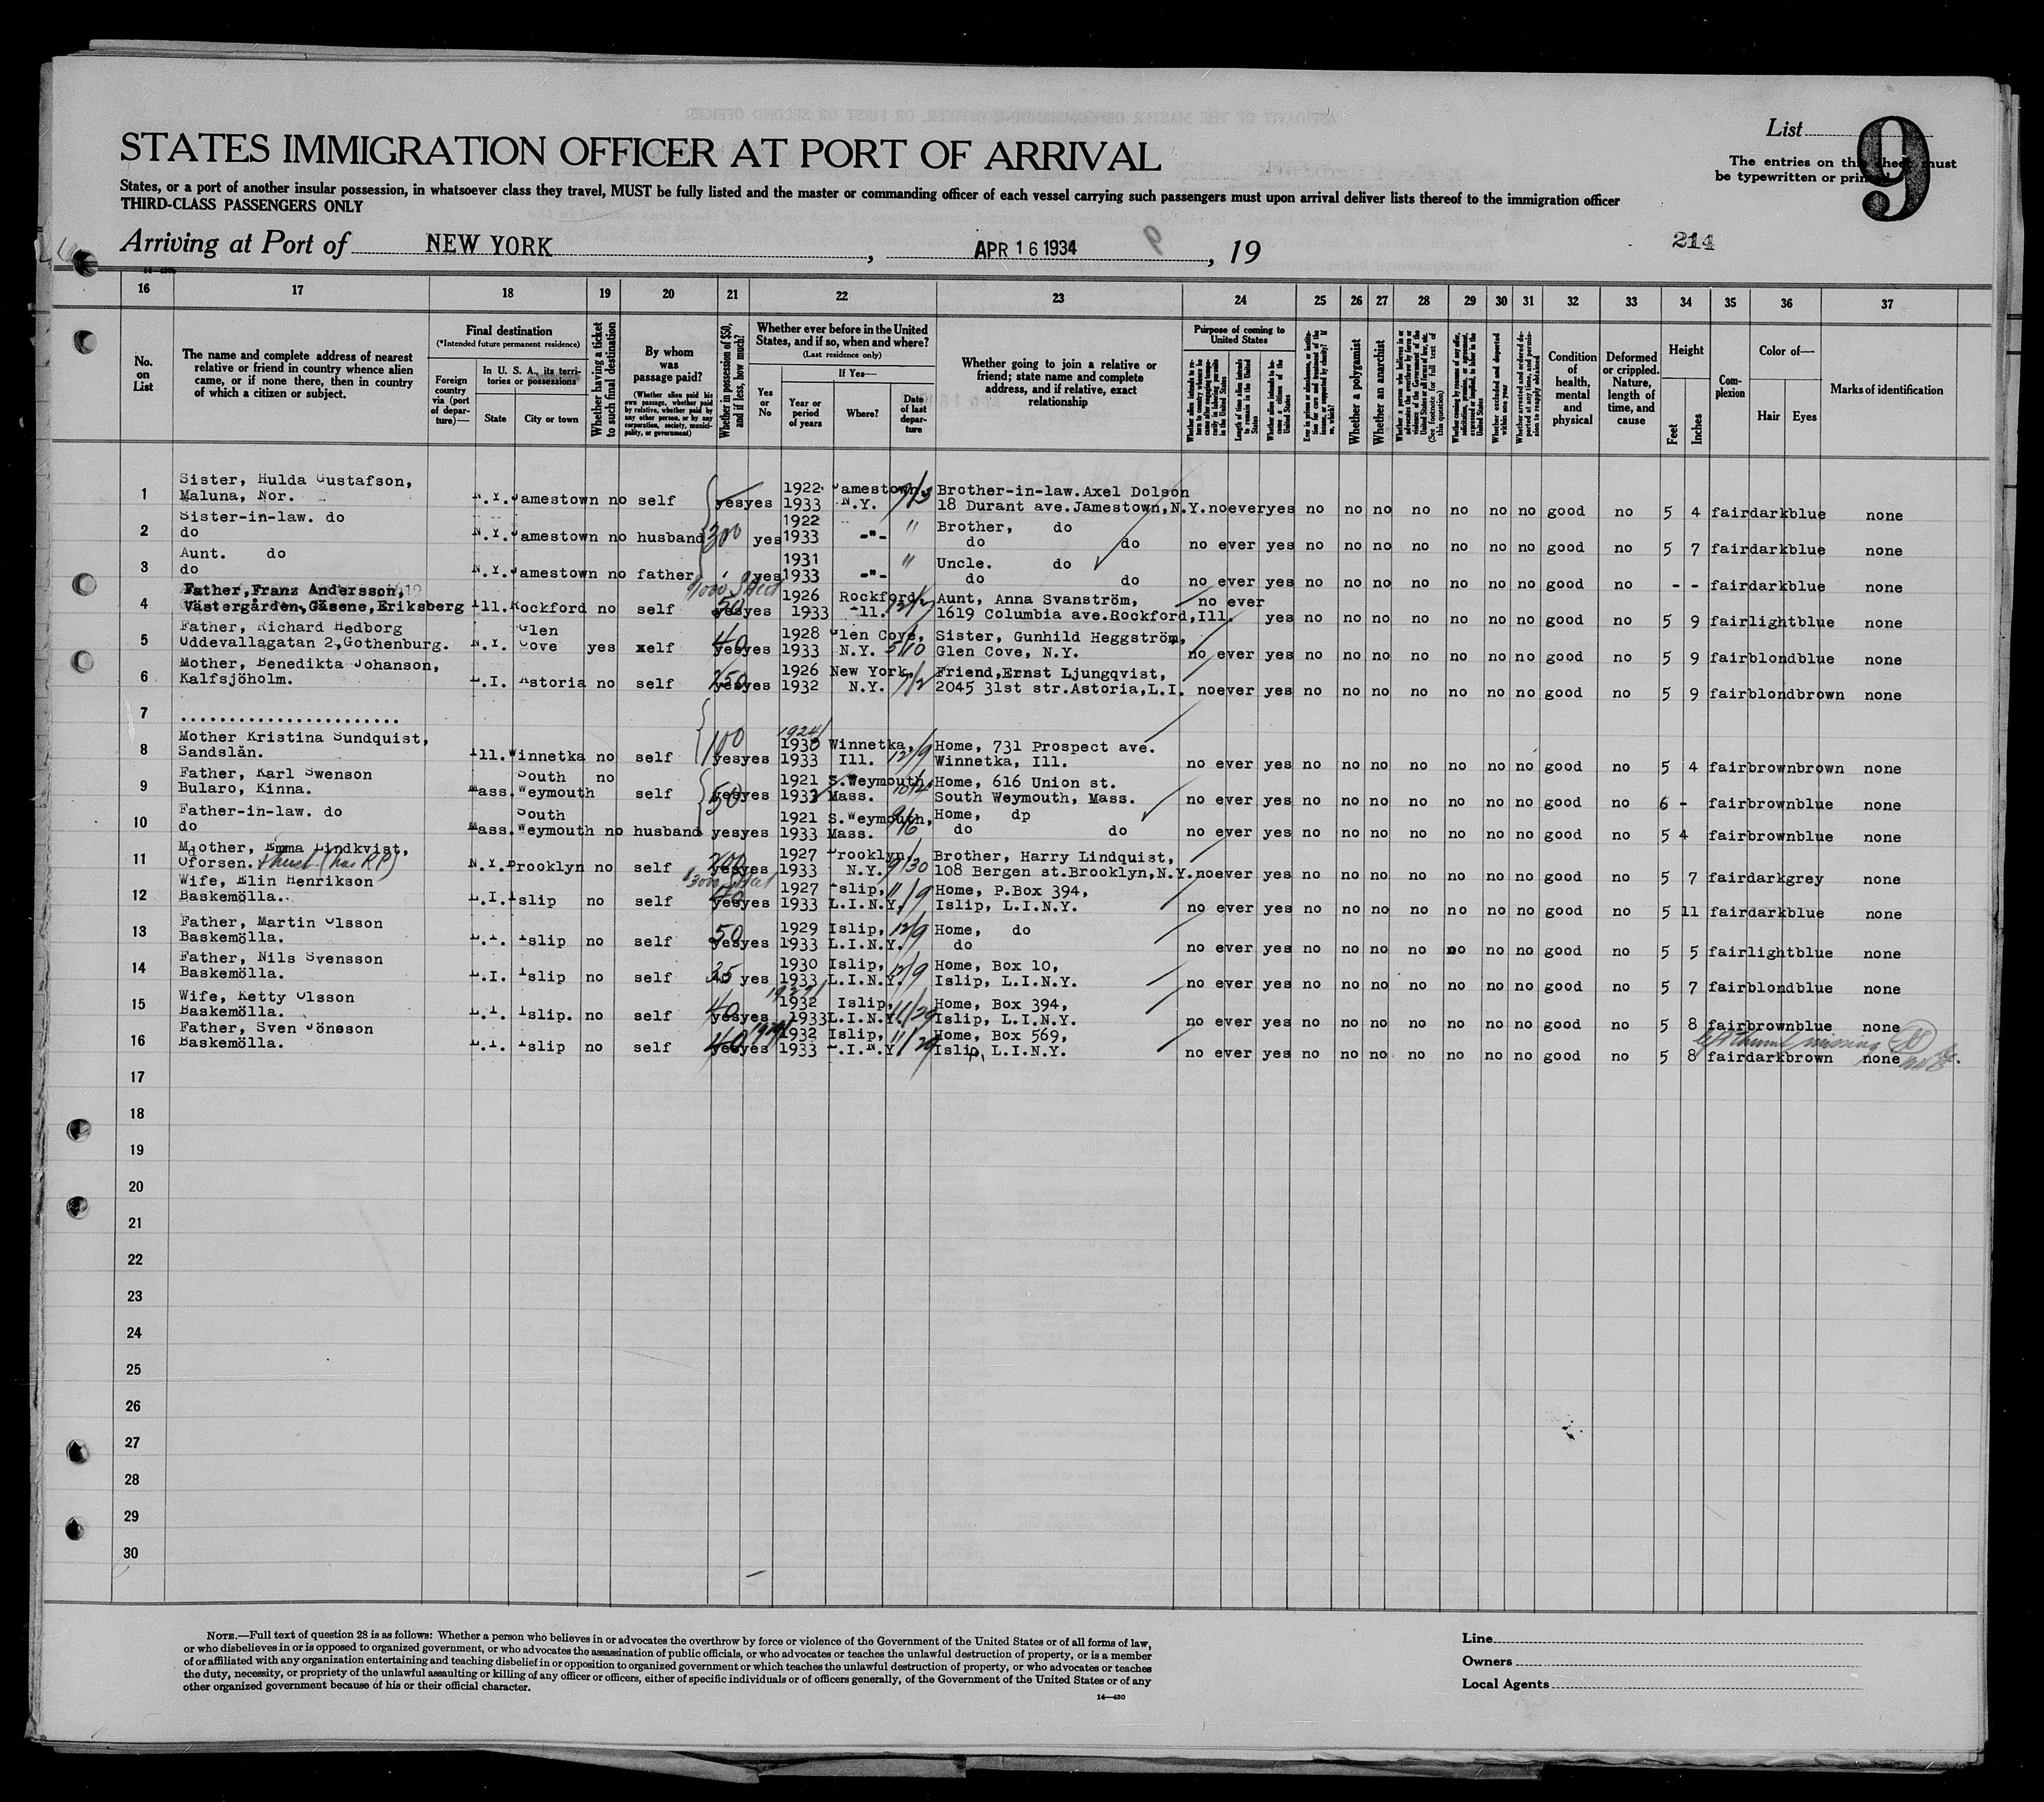 List
9
The entries on this sheet must
be typewritten or printed
STATES IMMIGRATION OFFICER AT PORT OF ARRIVAL
States, or a port of another insular possession, in whatsoever class they travel, MUST be fully listed and the master or commanding officer of each vessel carrying such passengers must upon arrival deliver lists thereof to the immigration officer
THIRD-CLASS PASSENGERS ONLY
Arriving at Port of NEW YORK, APR 16 1934, 19
214
16 17 18 19 20 21 22 23 24 25 26 27 28 29 30 31 32 33 34 35 36 37
No. on List
The name and complete address of nearest relative or friend in country whence alien came, or if none there, then in country of which a citizen or subject.
Final destination
(*Intended future permanent residence)
Foreign country via (port of departure)—
In U. S. A., its territories or possessions
State
City or town
Whether having a ticket to such final destination
By whom was passage paid?
(Whether alien paid his own passage, whether paid by relative, whether paid by any other person, or by any corporation, society, municipality, or government)
Whether in possession of $50, and if less, how much?
Whether ever before in the United States, and if so, when and where?
(Last residence only)
Yes or No
If Yes—
Year or period of years
Where?
Date of last departure
Whether going to join a relative or friend; state name and complete address, and if relative, exact relationship
Purpose of coming to United States
Whether alien intends to return to country whence he came after engaging temporarily in laboring pursuits in the United States
Length of time alien intends to remain in the United States
Whether alien intends to become a citizen of the United States
Ever in prison or almshouse, or institution for care and treatment of the insane, or supported by charity? If so, which?
Whether a polygamist
Whether an anarchist
(See footnote for full text of this question)
Whether coming by reason of any offer, solicitation, promise, or agreement, expressed or implied, to labor in the United States
Whether excluded and deported within one year
Whether arrested and ordered deported at any time, and permission to reapply obtained
Condition of health, mental and physical
Deformed or crippled. Nature, length of time, and cause
Height
Feet
Inches
Complexion
Color of—
Hair
Eyes
Marks of identification
Sister, Hulda Gustafson, 1922 Jamestown, Brother-in-law. Axel Dolson
1 Maluna, Nor. N.Y. Jamestown no self yes yes 1933 N.Y. 18 Durant ave. Jamestown, N.Y. no ever yes no no no no no no no good no 5 4 fair dark blue none
Sister-in-law. do 1922 " Brother, do
2 do N.Y. Jamestown no husband 300 yes 1933 -"- do do no ever yes no no no no no no no good no 5 7 fair dark blue none
Aunt. do 1931 " Uncle. do
3 do N.Y. Jamestown no father yes 1933 -"- do do no ever yes no no no no no no no good no - - fair dark blue none
Father, Franz Andersson, 1926 Rockford Aunt, Anna Svanström, no ever
4 Västergården, Gäsene, Eriksberg Ill. Rockford no self 50 yes yes 1933 Ill. 1619 Columbia ave. Rockford, Ill. yes no no no no no no no good no 5 9 fair light blue none
Father, Richard Hedborg Glen 1928 Glen Cove, Sister, Gunhild Heggström,
5 Uddevallagatan 2, Gothenburg. N.Y. Cove yes self 40 yes yes 1933 N.Y. 5/10 Glen Cove, N.Y. no ever yes no no no no no no no good no 5 9 fair blond blue none
Mother, Benedikta Johanson, 1926 New York, Friend, Ernst Ljungqvist,
6 Kalfsjöholm. L.I. Astoria no self yes yes 1932 N.Y. 2045 31st str. Astoria, L.I. no ever yes no no no no no no no good no 5 9 fair blond brown none
7 ........................
Mother Kristina Sundquist, 1924/ 1930 Winnetka, Home, 731 Prospect ave.
8 Sandslån. Ill. Winnetka no self 100 yes yes 1933 Ill. 12/9 Winnetka, Ill. no ever yes no no no no no no no good no 5 4 fair brown brown none
Father, Karl Swenson South no 1921 S. Weymouth, Home, 616 Union st.
9 Bularo, Kinna. Mass. Weymouth self 50 yes yes 1933 Mass. South Weymouth, Mass. no ever yes no no no no no no no good no 6 - fair brown blue none
Father-in-law. do South 1921 S. Weymouth, Home, dp
10 do Mass. Weymouth no husband yes yes 1933 Mass. do do no ever yes no no no no no no no good no 5 4 fair brown blue none
Mother, Emma Lindkvist, 1927 Brooklyn, Brother, Harry Lindquist,
11 Oforsen. (has RP) N.Y. Brooklyn no self 200 yes yes 1933 N.Y. 9/30 108 Bergen st. Brooklyn, N.Y. no ever yes no no no no no no no good no 5 7 fair dark grey none
Wife, Elin Henrikson 1927 Islip, Home, P.Box 394,
12 Baskemölla. L.I. Islip no self yes yes 1933 L.I.N.Y. 11/9 Islip, L.I.N.Y. no ever yes no no no no no no no good no 5 11 fair dark blue none
Father, Martin Olsson 1929 Islip, Home, do
13 Baskemölla. L.I. Islip no self 50 yes yes 1933 L.I.N.Y. 12/9 do no ever yes no no no no no no no good no 5 5 fair light blue none
Father, Nils Svensson 1930 Islip, Home, Box 10,
14 Baskemölla. L.I. Islip no self 35 yes 1933 L.I.N.Y. 12/9 Islip, L.I.N.Y. no ever yes no no no no no no no good no 5 7 fair blond blue none
Wife, Ketty Olsson 1932 Islip, Home, Box 394,
15 Baskemölla. L.I. Islip. no self 40 yes yes 1933 L.I.N.Y. 11/29 Islip, L.I.N.Y. no ever yes no no no no no no no good no 5 8 fair brown blue none
Father, Sven Jönsson 1932 Islip, Home, Box 569, left thumb missing
16 Baskemölla. L.I. Islip no self 40 yes yes 1933 L.I.N.Y. 11/29 Islip, L.I.N.Y. no ever yes no no no no no no no good no 5 8 fair dark brown none
17
18
19
20
21
22
23
24
25
26
27
28
29
30
NOTE.—Full text of question 28 is as follows: Whether a person who believes in or advocates the overthrow by force or violence of the Government of the United States or of all forms of law,
or who disbelieves in or is opposed to organized government, or who advocates the assassination of public officials, or who advocates or teaches the unlawful destruction of property, or is a member
of or affiliated with any organization entertaining and teaching disbelief in or opposition to organized government or which teaches the unlawful destruction of property, or who advocates or teaches
the duty, necessity, or propriety of the unlawful assaulting or killing of any officer or officers, either of specific individuals or of officers generally, of the Government of the United States or of any
other organized government because of his or their official character.
14—430
Line
Owners
Local Agents